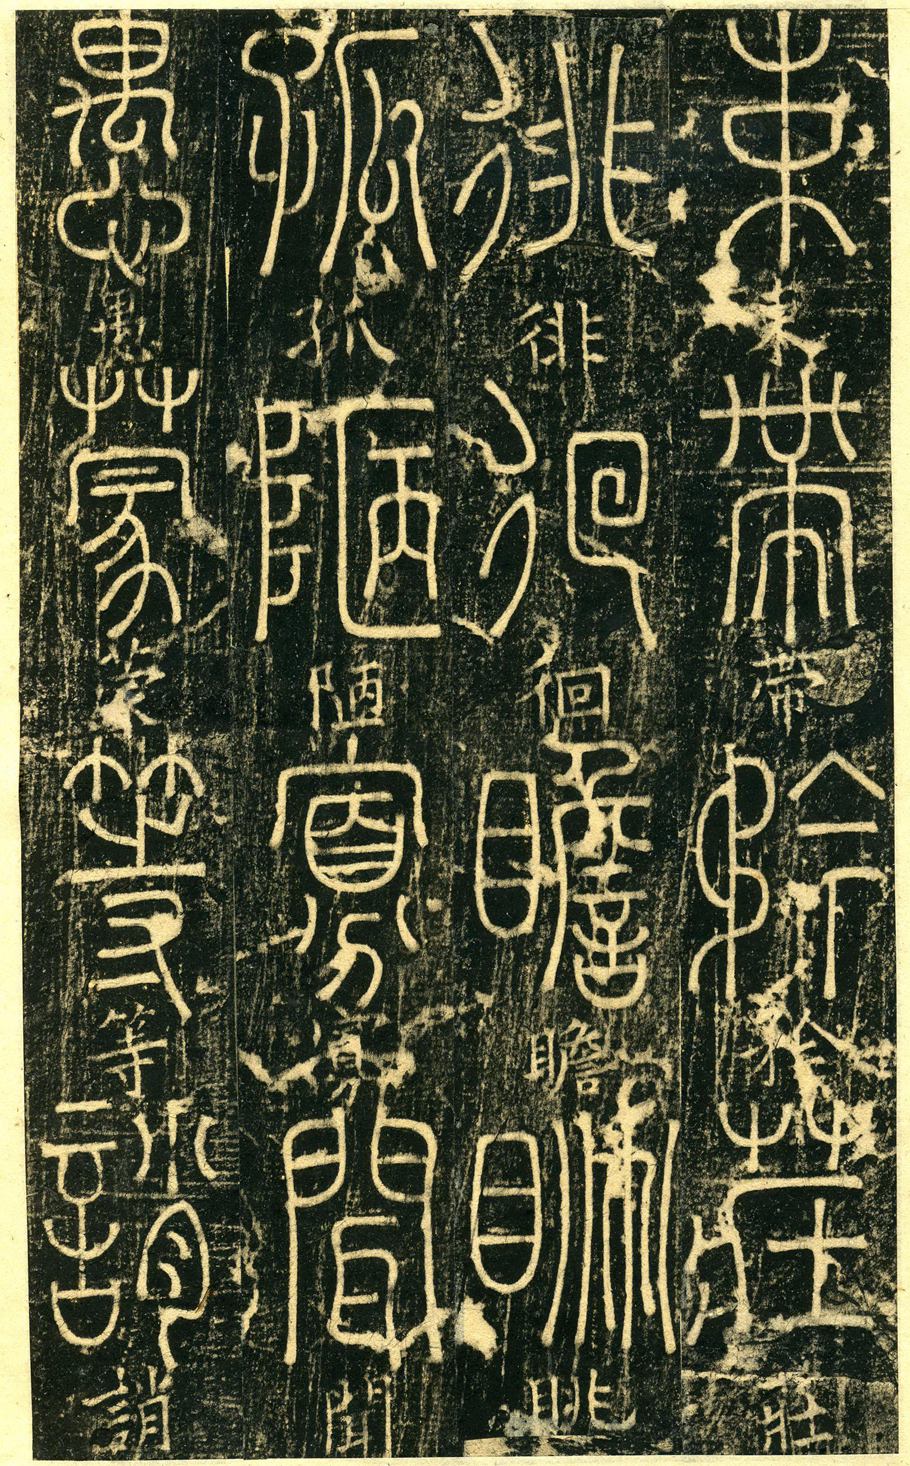 束束帶帶矜矜莊莊
徘徘徊徊瞻瞻眺眺
孤孤陋陋寡寡聞聞
愚愚蒙蒙等等誚誚